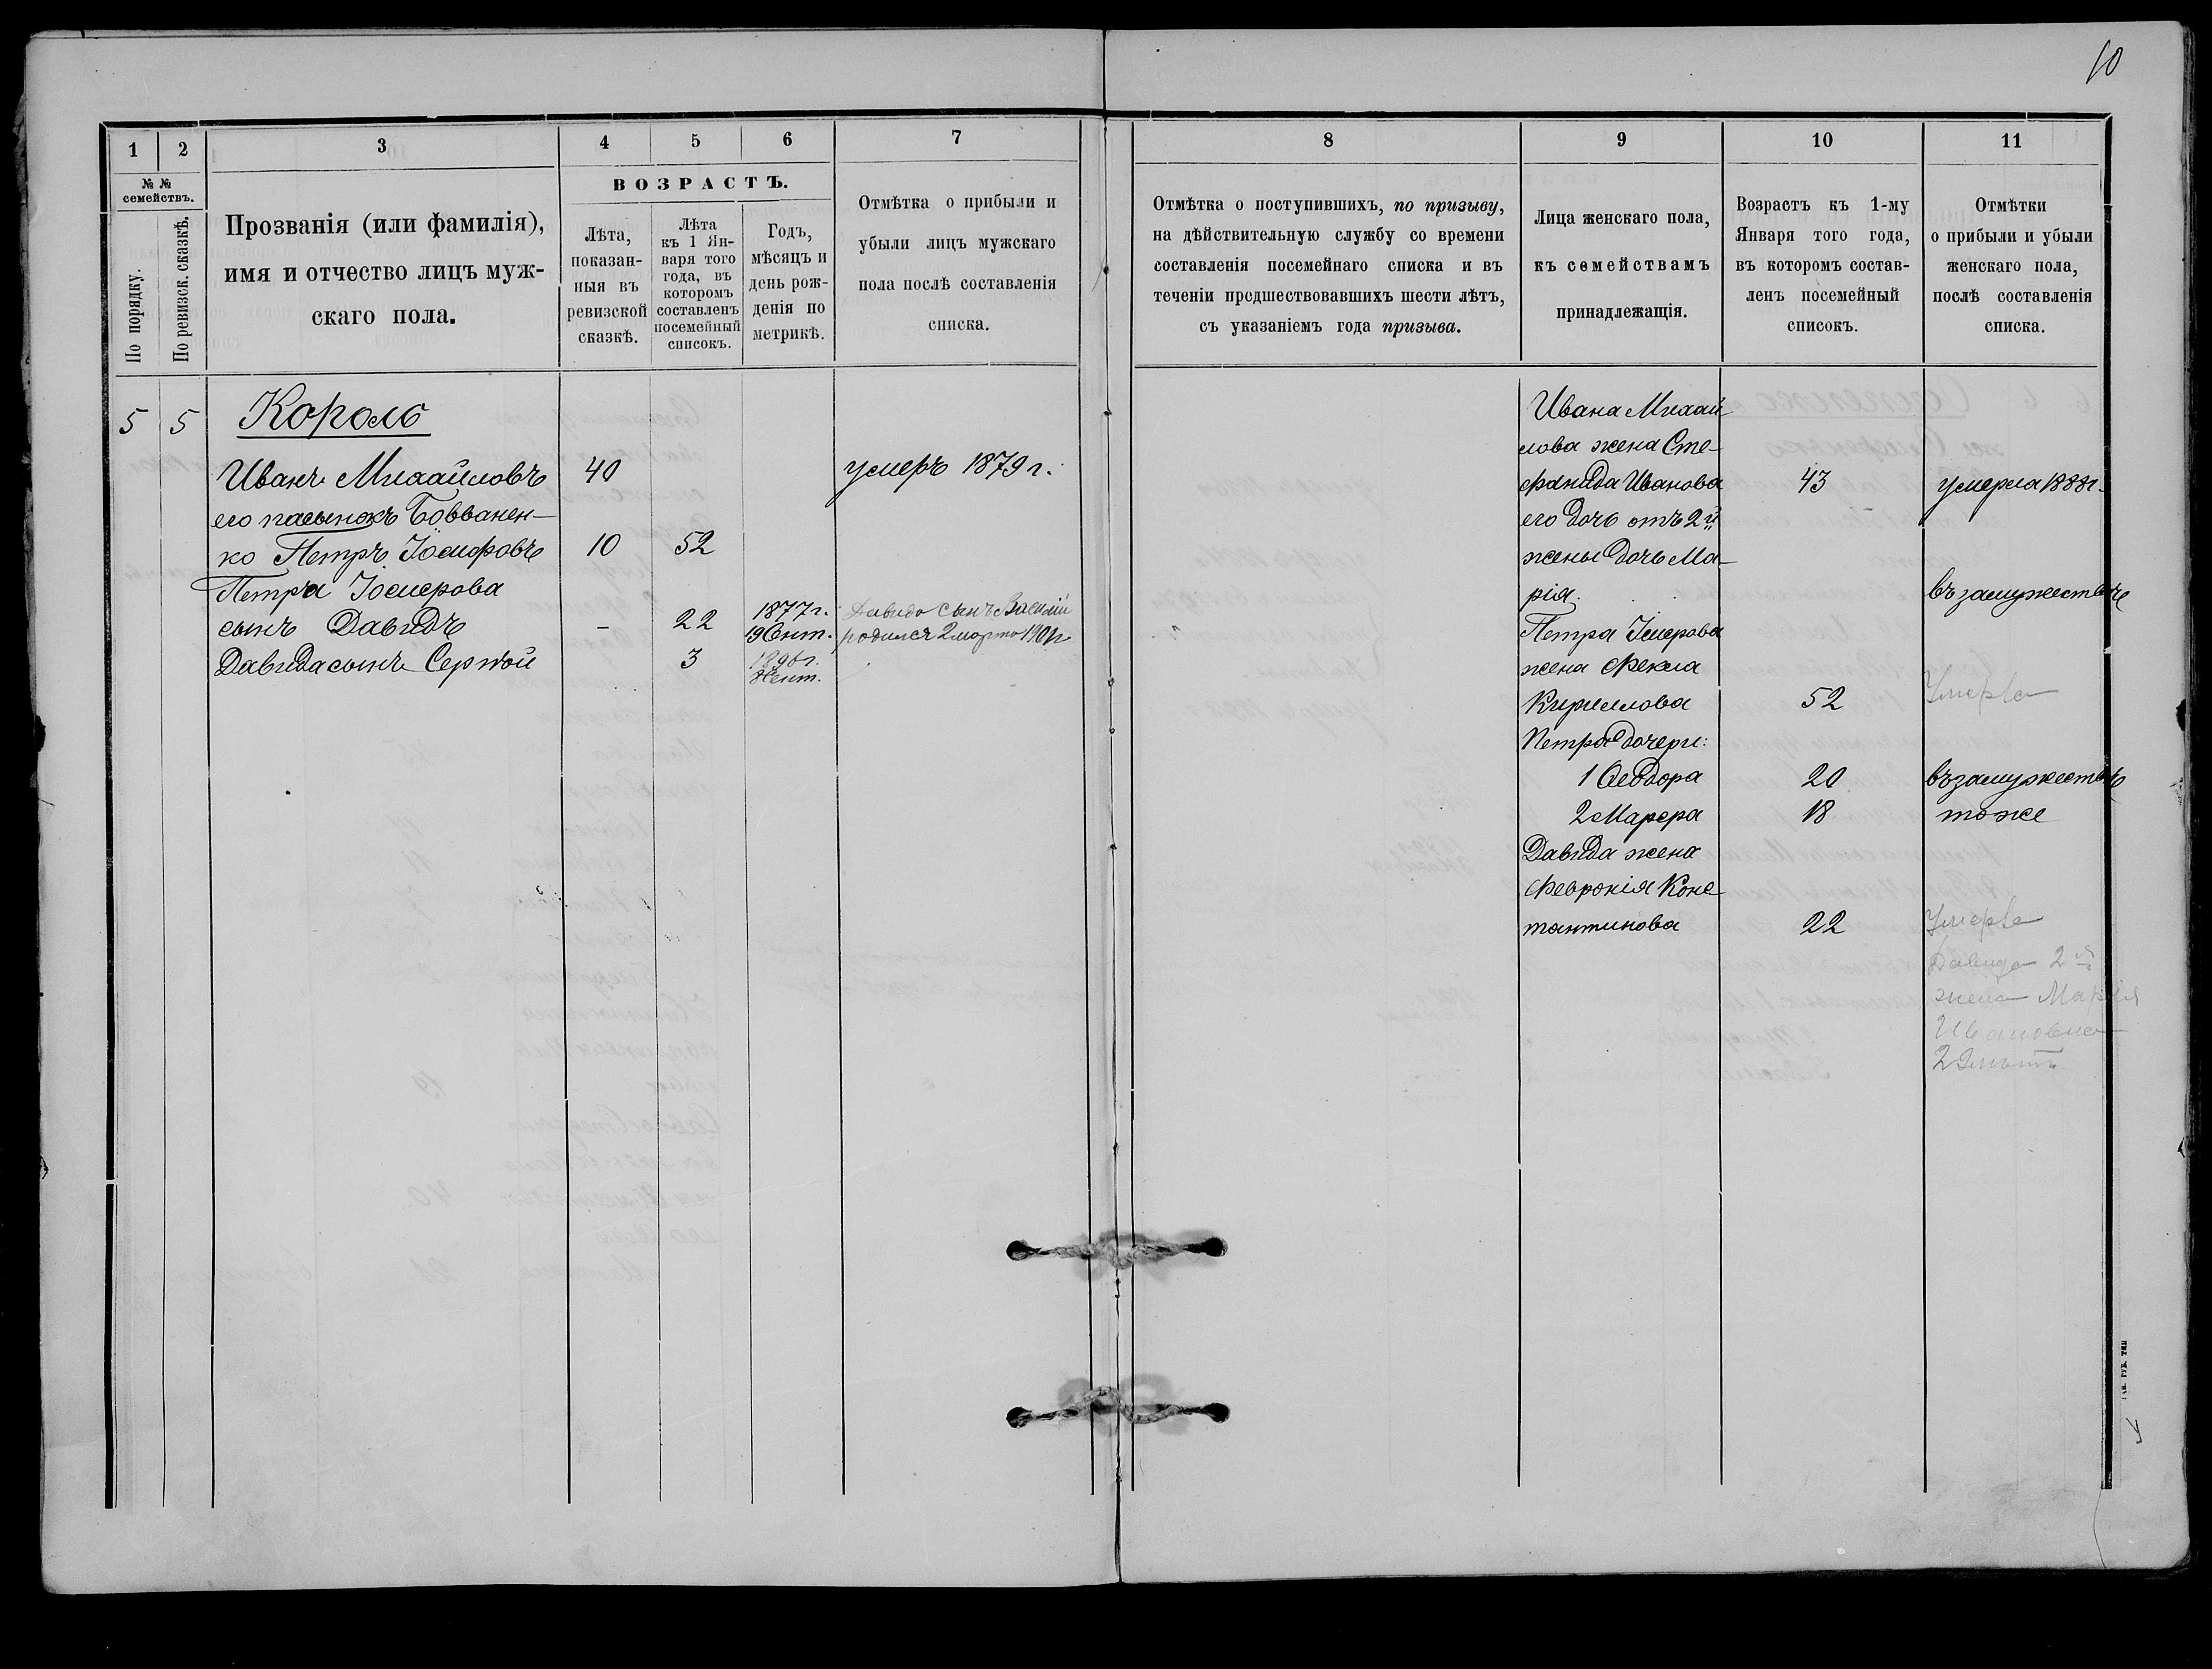 10
1
2
3
4
5
6
7
8
9
10
11
№ №
семействъ.
По порядку.
По ревизск. сказкѣ.
Прозванія (или фамилія),
имя и отчество лицъ муж-
скаго пола.
ВОЗРАСТЪ.
Лѣта,
показан-
ныя въ
ревизской
сказкѣ.
Лѣта
къ 1 Ян-
варя того
года, въ
которомъ
составленъ
посемейный
списокъ.
Годъ,
мѣсяцъ и
день рож-
денія по
метрикѣ.
Отмѣтка о прибыли и
убыли лицъ мужскаго
пола послѣ составленія
списка.
Отмѣтка о поступившихъ, по призыву,
на дѣйствительную службу со времени
составленія посемейнаго списка и въ
теченіи предшествовавшихъ шести лѣтъ,
съ указаніемъ года призыва.
Лица женскаго пола,
къ семействамъ
принадлежащія.
Возрастъ къ 1-му
Января того года,
въ которомъ состав-
ленъ посемейный
списокъ.
Отмѣтки
о прибыли и убыли
женскаго пола,
послѣ составленія
списка.
5 5 Король
Иванъ Михайловъ 40 умеръ 1879 г.
его пасынокъ Бовванен-
ко Петръ Іосифовъ 10 52
Петра Іосифова
сынъ Давидъ – 22 1877 г.
19 Окт.
Давида сынъ Василій
родился 2 марта 1901 г
Давида сынъ Сергѣй 3 1896 г.
Сент.
Ивана Михай-
лова жена Сте-
фанида Иванова 43 умерла 1888 г.
его дочь отъ 2й
жены дочь Ма-
рія. въ замужествѣ
Петра Іосифова
жена Фекла
Кириллова 52 Умерла
Петра дочери:
1 Феодора 20 въ замужествѣ
2 Марфа 18 тоже
Давида жена
Февронія Конс-
тантинова 22 Умерла
Давида 2я
жена Марія
Ивановна
22 лѣтъ